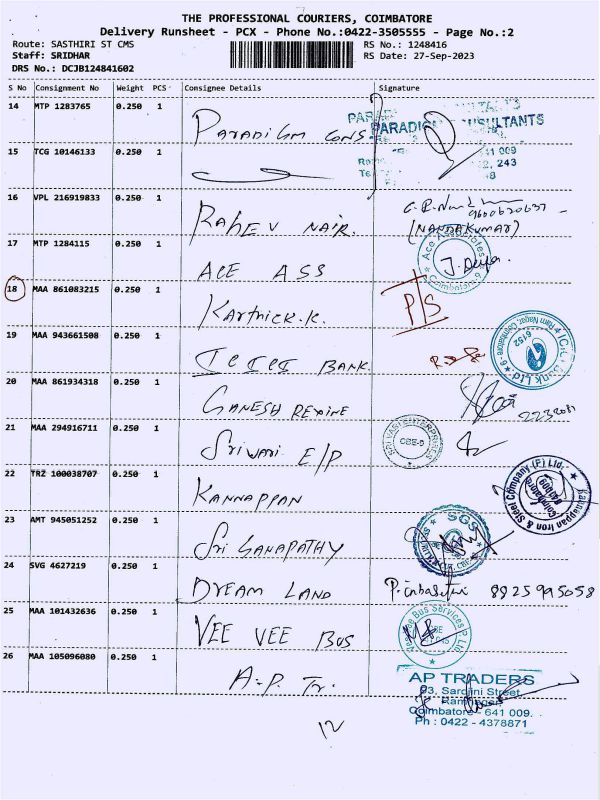 THE PROFESSIONAL COURIERS, COIMBATORE
Delivery Runsheet - PCX - Phone No.:0422-3505555 - Page No.:2
Route: SASTHIRI ST CMS RS No.: 1248416
Staff: SRIDHAR RS Date: 27-Sep-2023
DRS No.: DCJB124841602
S No Consignment No Weight PCS Consignee Details Signature
14 MTP 1283765 0.250 1 PARADIGM CONS
PARADIGM CONSULTANTS
15 TCG 10146133 0.250 1
16 VPL 216919833 0.250 1 RAHEV NAIR. 9600620637
(NANDAKUMAR)
17 MTP 1284115 0.250 1 ACE ASS J. Deepa.
Coimbatore
18 MAA 861083215 0.250 1 Karthick.K. P/S
19 MAA 943661508 0.250 1 ICICI BANK.
Ram Nagar, Coimbatore - 6
6152
20 MAA 861934318 0.250 1 GANESH REXINE
21 MAA 294916711 0.250 1 Sriwari E/P
SRI VARI ENTERPRISES
CBE-9
22 TRZ 100038707 0.250 1 KANNAPPAN
Kannappan Iron & Steel Company (P) Ltd.
Coimbatore
641009
23 AMT 945051252 0.250 1 Sri GANAPATHY
SGS
24 SVG 4627219 0.250 1 DREAM LAND 8825995058
25 MAA 101432636 0.250 1 VEE VEE BUS
Vee Vee Bus Services P Ltd
26 MAA 105096080 0.250 1 A.P. Tr.
AP TRADERS
93, Sarojini Street
Ramnagar
Coimbatore - 641 009.
Ph : 0422 - 4378871
12